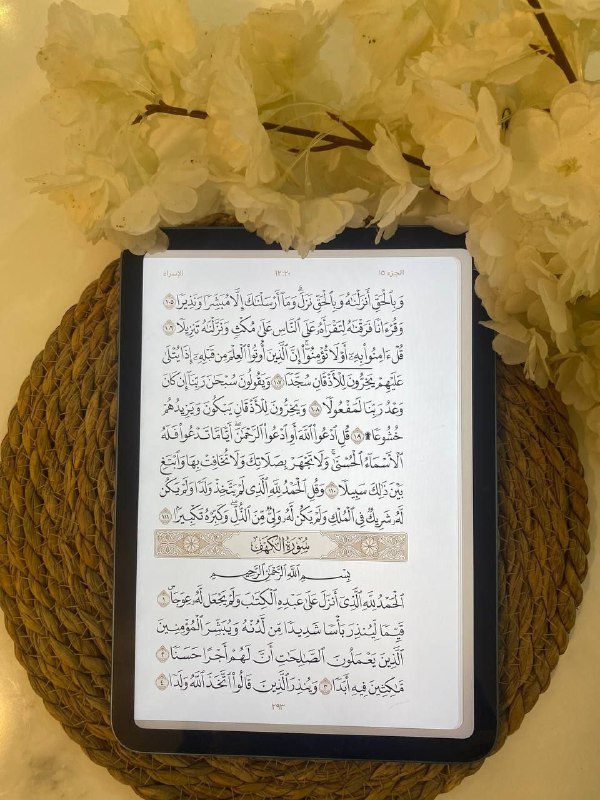 الجزء ١٥ ١٢:٢٠ الإسراء
وَبِٱلْحَقِّ أَنزَلْنَٰهُ وَبِٱلْحَقِّ نَزَلَ ۗ وَمَآ أَرْسَلْنَٰكَ إِلَّا مُبَشِّرًا وَنَذِيرًا ١٠٥
وَقُرْءَانًا فَرَقْنَٰهُ لِتَقْرَأَهُۥ عَلَى ٱلنَّاسِ عَلَىٰ مُكْثٍ وَنَزَّلْنَٰهُ تَنزِيلًا ١٠٦
قُلْ ءَامِنُوا۟ بِهِۦٓ أَوْ لَا تُؤْمِنُوٓا۟ ۚ إِنَّ ٱلَّذِينَ أُوتُوا۟ ٱلْعِلْمَ مِن قَبْلِهِۦٓ إِذَا يُتْلَىٰ
عَلَيْهِمْ يَخِرُّونَ لِلْأَذْقَانِ سُجَّدًا ١٠٧ وَيَقُولُونَ سُبْحَٰنَ رَبِّنَآ إِن كَانَ
وَعْدُ رَبِّنَا لَمَفْعُولًا ١٠٨ وَيَخِرُّونَ لِلْأَذْقَانِ يَبْكُونَ وَيَزِيدُهُمْ
خُشُوعًا ۩ ١٠٩ قُلِ ٱدْعُوا۟ ٱللَّهَ أَوِ ٱدْعُوا۟ ٱلرَّحْمَٰنَ ۖ أَيًّا مَّا تَدْعُوا۟ فَلَهُ
ٱلْأَسْمَآءُ ٱلْحُسْنَىٰ ۚ وَلَا تَجْهَرْ بِصَلَاتِكَ وَلَا تُخَافِتْ بِهَا وَٱبْتَغِ
بَيْنَ ذَٰلِكَ سَبِيلًا ١١٠ وَقُلِ ٱلْحَمْدُ لِلَّهِ ٱلَّذِى لَمْ يَتَّخِذْ وَلَدًا وَلَمْ يَكُن
لَّهُۥ شَرِيكٌ فِى ٱلْمُلْكِ وَلَمْ يَكُن لَّهُۥ وَلِىٌّ مِّنَ ٱلذُّلِّ ۖ وَكَبِّرْهُ تَكْبِيرًۢا ١١١
سُورَةُ الكَهْفِ
بِسْمِ ٱللَّهِ ٱلرَّحْمَٰنِ ٱلرَّحِيمِ
ٱلْحَمْدُ لِلَّهِ ٱلَّذِىٓ أَنزَلَ عَلَىٰ عَبْدِهِ ٱلْكِتَٰبَ وَلَمْ يَجْعَل لَّهُۥ عِوَجَاۜ ١
قَيِّمًا لِّيُنذِرَ بَأْسًا شَدِيدًا مِّن لَّدُنْهُ وَيُبَشِّرَ ٱلْمُؤْمِنِينَ
ٱلَّذِينَ يَعْمَلُونَ ٱلصَّٰلِحَٰتِ أَنَّ لَهُمْ أَجْرًا حَسَنًا ٢
مَّٰكِثِينَ فِيهِ أَبَدًا ٣ وَيُنذِرَ ٱلَّذِينَ قَالُوا۟ ٱتَّخَذَ ٱللَّهُ وَلَدًا ٤
٢٩٣